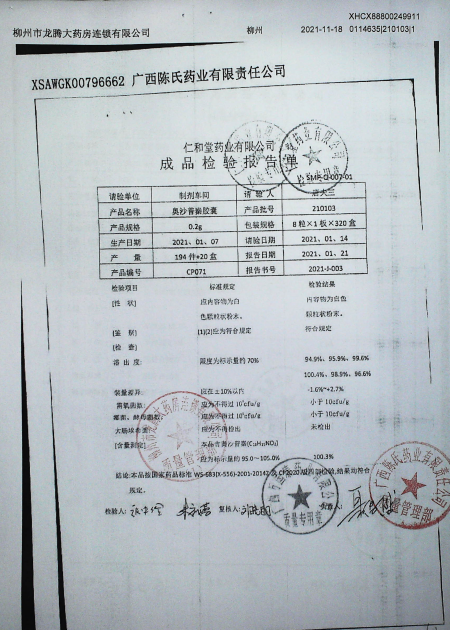 XHCX88800249911
柳州市龙腾大药房连锁有限公司 柳州 2021-11-18 0114635|210103|1
XSAWGK00796662 广西陈氏药业有限责任公司
仁和堂药业有限公司
成品检验报告单
SMP-Q-007-01
请验单位 制剂车间 请验人
产品名称 奥沙普秦胶囊 产品批号 210103
产品规格 0.2g 包装规格 8粒×1板×320盒
生产日期 2021、01、07 请验日期 2021、01、14
产量 194件+20盒 报告日期 2021、01、21
产品编号 CP071 报告书号 2021-J-003
检验项目 标准规定 检验结果
[性状] 应内容物为白 内容物为白色
色颗粒状粉末。 颗粒状粉末。
[鉴别] [1](2)应为符合规定 符合规定
[检查]
溶出度: 限度为标示量的70% 94.9%、95.9%、99.6%
100.4%、98.9%、96.6%
装量差异: 应在±10%以内 -1.6%~+2.7%
需氧菌数: 应为不得过10³cfu/g 小于10cfu/g
霉菌、酵母菌数: 应为不得过10²cfu/g 小于10cfu/g
大肠埃希菌: 应为不得检出 未检出
[含量测定] 本品含奥沙普秦(C₁₈H₁₅NO₃)
应为标示量的95.0~105.0% 100.3%
结论:本品按国家药品标准 WS-683(X-556)-2001-2014Z 及CP2020 版四部检验,结果均符合
规定。
检验人: 复核人:
质量管理部
质量专用章
广西陈氏药业有限责任公司
质量管理部